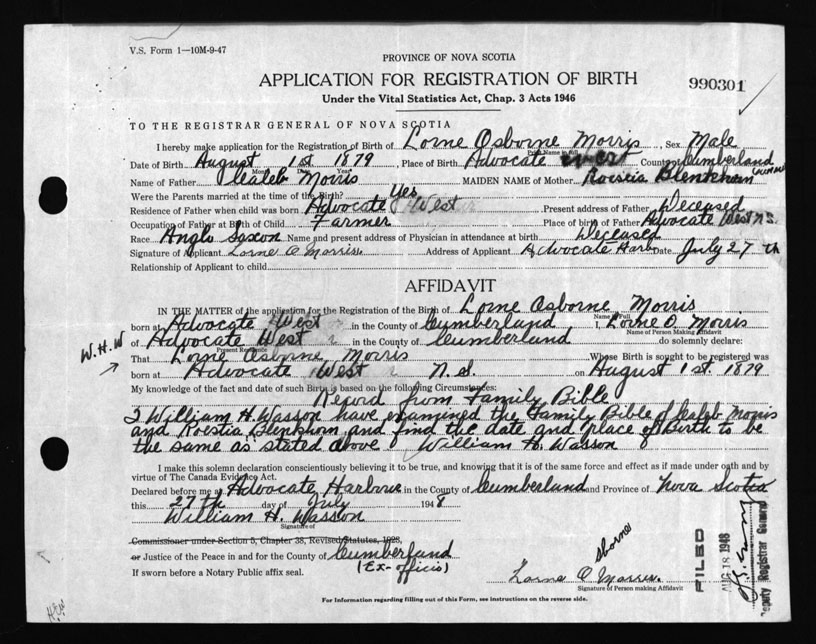 V.S. Form 1—10M-9-47
PROVINCE OF NOVA SCOTIA
APPLICATION FOR REGISTRATION OF BIRTH
990301
Under the Vital Statistics Act, Chap. 3 Acts 1946
TO THE REGISTRAR GENERAL OF NOVA SCOTIA
I hereby make application for the Registration of Birth of Lorne Osborne Morris, Sex Male
Print Name in full
Date of Birth August 1st 1879, Place of Birth Advocate West County Cumberland
Month Day Year
Name of Father Caleb Morris MAIDEN NAME of Mother Blenkhorn
Were the Parents married at the time of the Birth? Yes
Residence of Father when child was born Advocate West Present address of Father Deceased
Occupation of Father at Birth of Child Farmer Place of birth of Father Advocate West N.S.
Race Anglo Saxon Name and present address of Physician in attendance at birth Deceased
Signature of Applicant Lorne O Morris. Address of Applicant Advocate Harb Date July 27th
Relationship of Applicant to child
AFFIDAVIT
IN THE MATTER of the application for the Registration of the Birth of Lorne Osborne Morris
Name in Full
born at Advocate West in the County of Cumberland I, Lorne O. Morris
Name of Person Making Affidavit
W.H.W of Advocate West in the County of Cumberland do solemnly declare:
Present Residence
That Lorne Osborne Morris Whose Birth is sought to be registered was
born at Advocate West N.S. on August 1st. 1879
My knowledge of the fact and date of such Birth is based on the following Circumstances:
Record from Family Bible
I William H. Wasson have examined the Family Bible of Caleb Morris
and Roestia Blenkhorn and find the date and place of Birth to be
the same as stated above William H. Wasson
I make this solemn declaration conscientiously believing it to be true, and knowing that it is of the same force and effect as if made under oath and by
virtue of The Canada Evidence Act.
Declared before me at Advocate Harbour in the County of Cumberland and Province of Nova Scotia
this 27th day of July 1948
William H. Wasson
Signature of
Commissioner under Section 5, Chapter 38, Revised Statutes, 1923,
or Justice of the Peace in and for the County of Cumberland
(Ex-officio)
If sworn before a Notary Public affix seal.
sborne
Lorne O Morris.
Signature of Person making Affidavit
FILED
AUG 18 1948
Deputy Registrar General
For Information regarding filling out of this Form, see instructions on the reverse side.